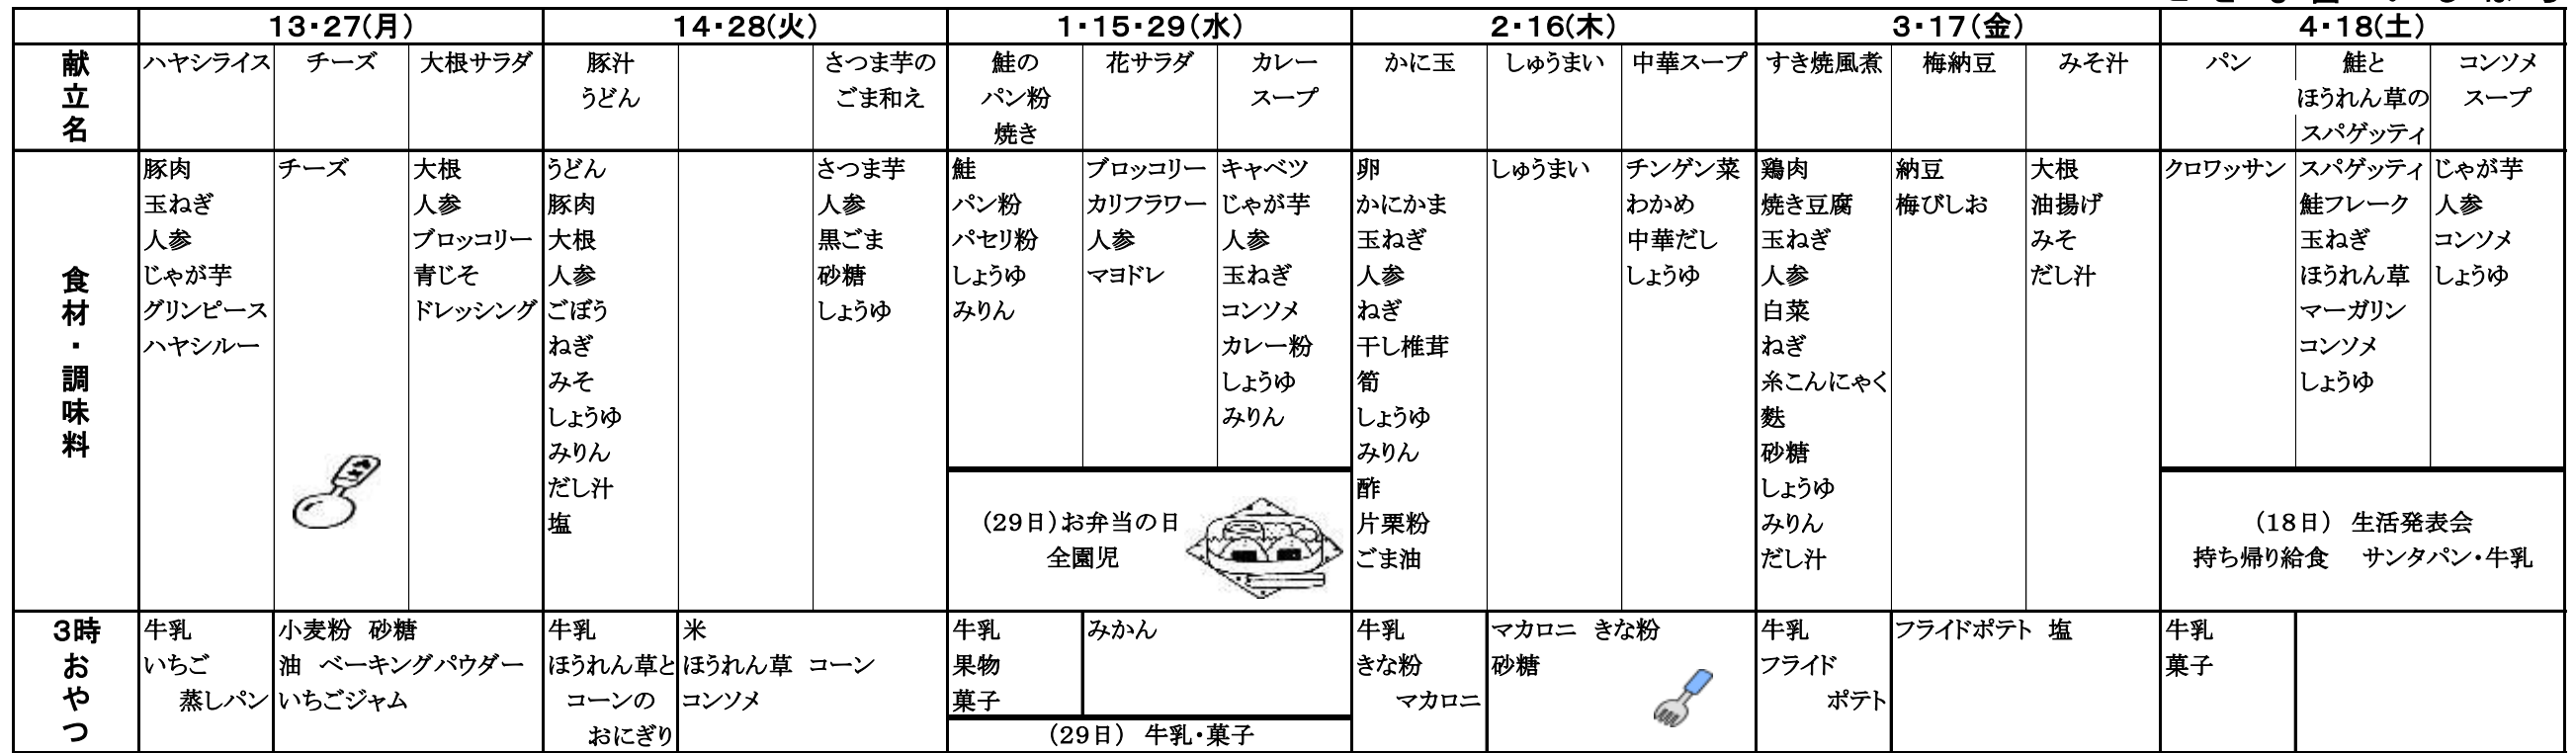 13・27(月)
14・28(火)
1・15・29(水)
2・16(木)
3・17(金)
4・18(土)
献立名
ハヤシライス
チーズ
大根サラダ
豚汁
うどん
さつま芋の
ごま和え
鮭の
パン粉
焼き
花サラダ
カレー
スープ
かに玉
しゅうまい
中華スープ
すき焼風煮
梅納豆
みそ汁
パン
鮭と
ほうれん草の
スパゲッティ
コンソメ
スープ
食材・調味料
豚肉
玉ねぎ
人参
じゃが芋
グリンピース
ハヤシルー
チーズ
大根
人参
ブロッコリー
青じそ
ドレッシング
うどん
豚肉
大根
人参
ごぼう
ねぎ
みそ
しょうゆ
みりん
だし汁
塩
さつま芋
人参
黒ごま
砂糖
しょうゆ
鮭
パン粉
パセリ粉
しょうゆ
みりん
ブロッコリー
カリフラワー
人参
マヨドレ
キャベツ
じゃが芋
人参
玉ねぎ
コンソメ
カレー粉
しょうゆ
みりん
(29日)お弁当の日
全園児
卵
かにかま
玉ねぎ
人参
ねぎ
干し椎茸
筍
しょうゆ
みりん
酢
片栗粉
ごま油
しゅうまい
チンゲン菜
わかめ
中華だし
しょうゆ
鶏肉
焼き豆腐
玉ねぎ
人参
白菜
ねぎ
糸こんにゃく
麩
砂糖
しょうゆ
みりん
だし汁
納豆
梅びしお
大根
油揚げ
みそ
だし汁
クロワッサン
スパゲッティ
鮭フレーク
玉ねぎ
ほうれん草
マーガリン
コンソメ
しょうゆ
じゃが芋
人参
コンソメ
しょうゆ
(18日) 生活発表会
持ち帰り給食 サンタパン・牛乳
3時おやつ
牛乳
いちご
蒸しパン
小麦粉 砂糖
油 ベーキングパウダー
いちごジャム
牛乳
ほうれん草と
コーンの
おにぎり
米
ほうれん草 コーン
コンソメ
牛乳
果物
菓子
みかん
(29日) 牛乳・菓子
牛乳
きな粉
マカロニ
マカロニ きな粉
砂糖
牛乳
フライド
ポテト
フライドポテト 塩
牛乳
菓子